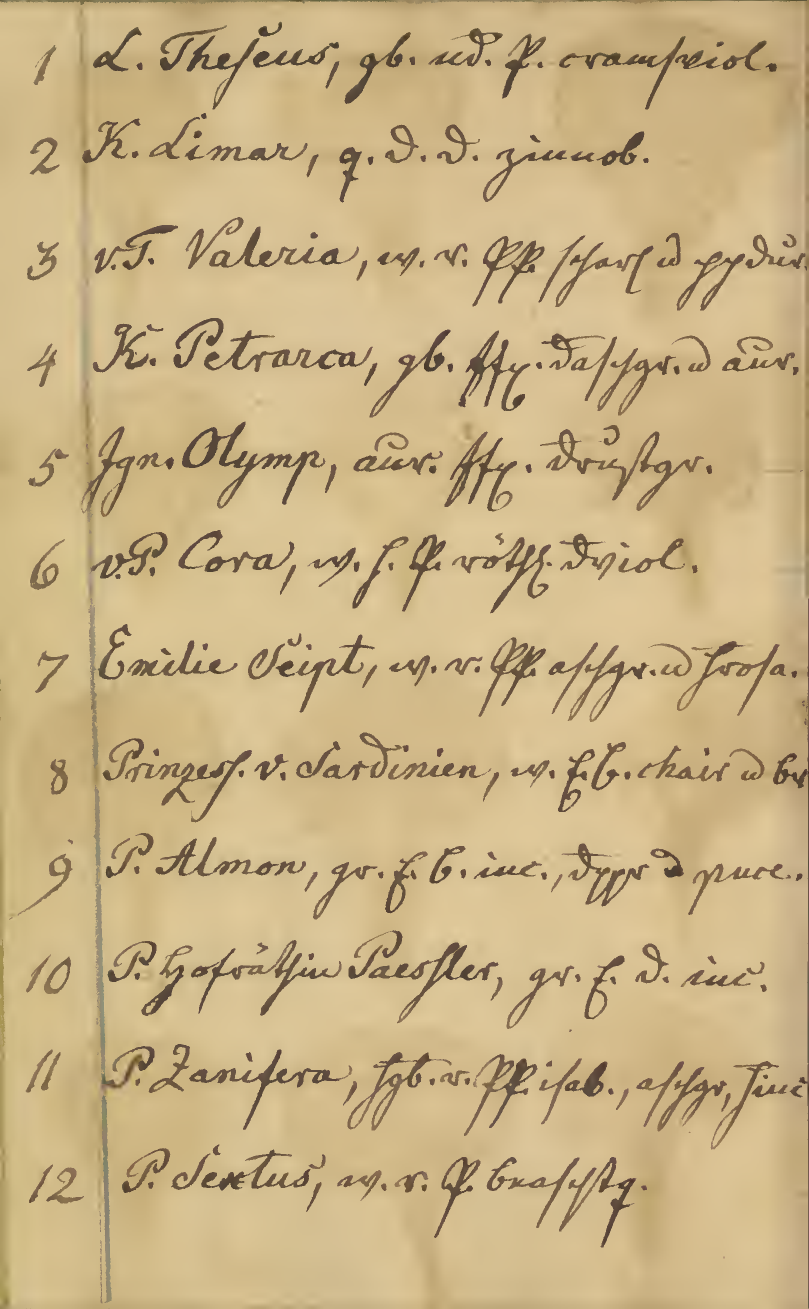 1 L. Theseus, gb. nd. P. cramsviol.
2 K. Limar, q. d. d. zinnob.
3 v.T. Valeria, w. r. PP. scharl u ppdur
4 K. Petrarca, gb. ffp. daschgr. u aur.
5 Ign. Olymp, aur. ffp. drustgr.
6 v.P. Cora, w. h. P. röthl. dviol.
7 Emilie Seipt, w. r. PP. aschgr. u hrosa.
8 Prinzess. v. Sardinien, w. E. b. chair u br
9 P. Almon, gr. E. b. inc., dppr u puce.
10 P. Hofräthin Paessler, gr. E. d. inc.
11 P. Zanifera, hgb. r. PP. isab., aschgr, hinc
12 P. Sextus, w. r. P. braschfq.